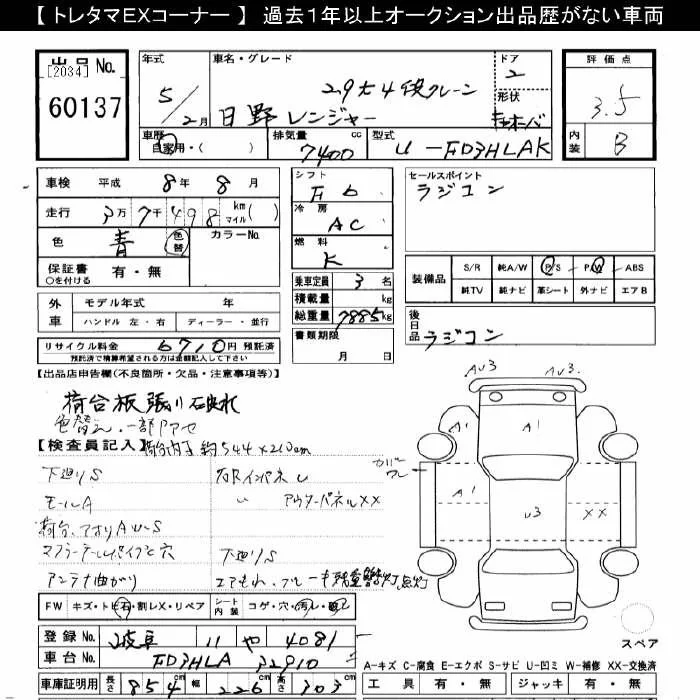 【 トレタマEXコーナー 】 過去１年以上オークション出品歴がない車両
出品 No.
[2034]
60137
年式
5/2月
車名・グレード
2.9t 4段クレーン
日野レンジャー
ドア
2
形状
評価点
3.5
内装
B
車歴
自家用・( )
排気量
7400 cc
型式
U-FD3HLAK
車検 平成 8年 8月
走行 3万 7千 498 km マイル ( )
色 青 色替 カラーNo.
保証書 ○を付ける 有・無
外車 モデル年式 年
ハンドル 左・右 ディーラー・並行
リサイクル料金 6710円 預託済
預託済で精算希望される方は金額記入して下さい
シフト
F6
冷房
AC
燃料
K
乗車定員 3 名
積載量 kg
総重量 7885 kg
書類期限
月 日
セールスポイント
ラジコン
装備品 S/R 純A/W P/S P/W ABS
純TV 純ナビ 革シート 外ナビ エアB
後日品 ラジコン
【出品店申告欄(不良箇所・欠品・注意事項等)】
荷台板張り
色替え、一部
【検査員記入】 荷台内寸 約544×210cm
下廻りS
モールA
荷台、アオリAU-S
マフラーテールパイプと穴
アンテナ曲がり
右RインパネU
〃 アウターパネルXX
下廻りS
カバーワレ
AU3
AU3
A1
A1
A1
A1
U3
XX
スペア
FW キズ・トビ石・割レX・リペア シート内装 コゲ・穴・汚レ・破レ
登録 No. 岐阜 11 や 4081
車台 No. FD3HLA 32910
車庫証明用 長さ 854 cm 幅 226 cm 高さ 303 cm
A-キズ C-腐食 E-エクボ S-サビ U-凹ミ W-補修 XX-交換済
工具 有・無 ジャッキ 有・無